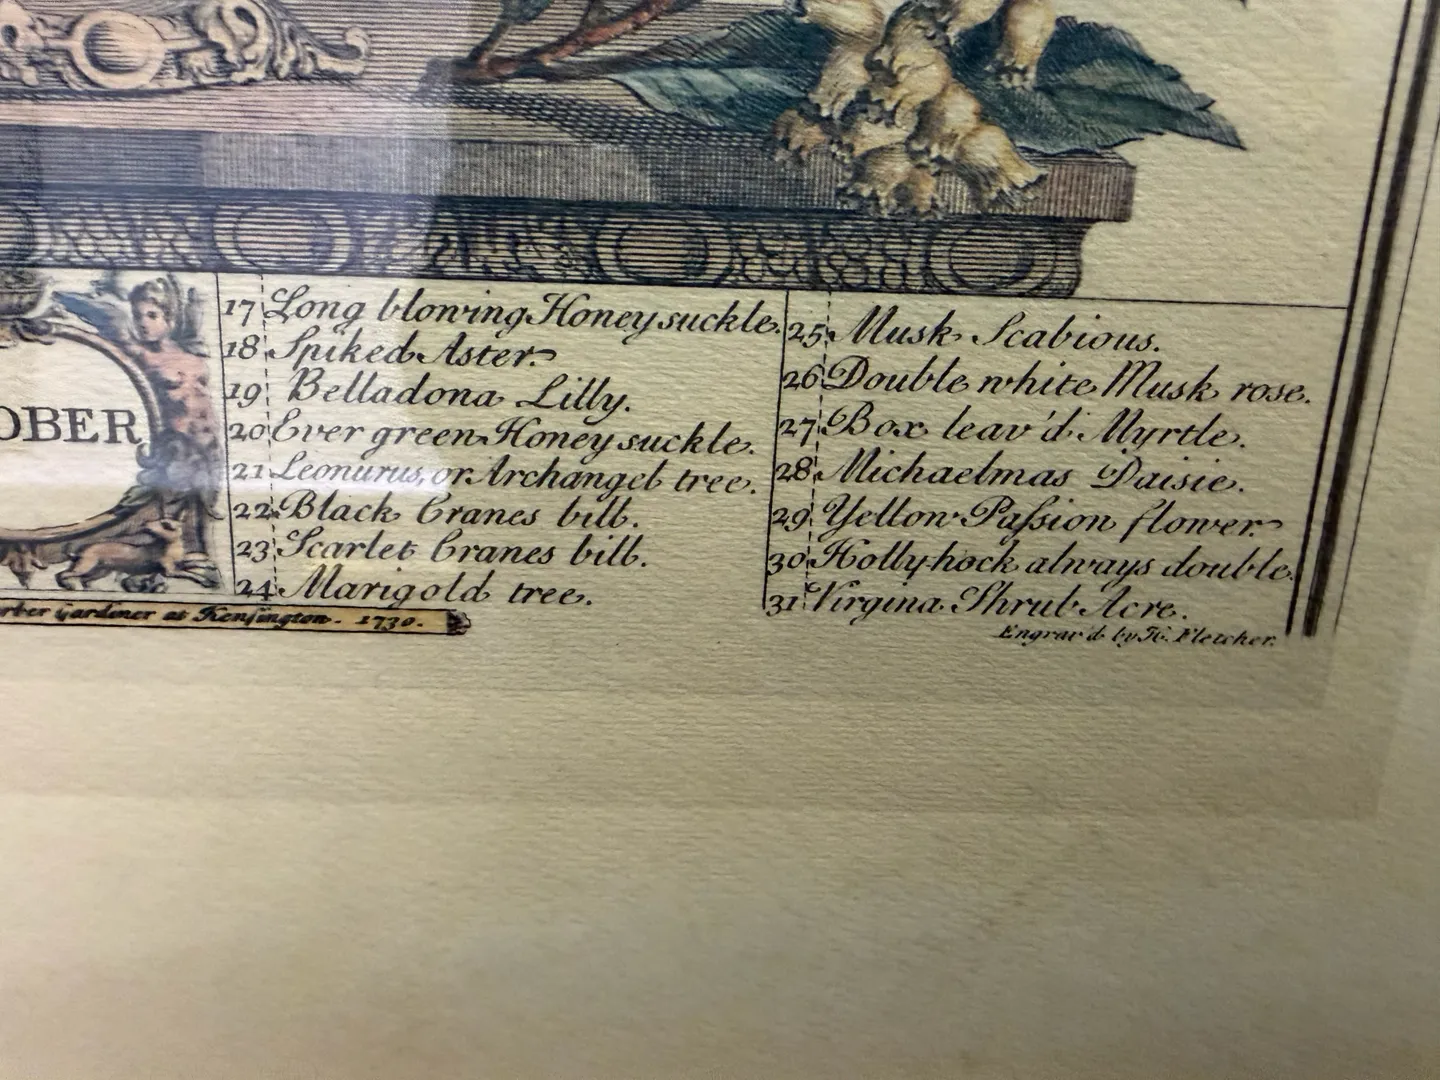 OBER
17 Long blowing Honeysuckle.
18 Spiked Aster.
19 Belladona Lilly.
20 Ever green Honeysuckle.
21 Leonurus, or Archangel tree.
22 Black Cranes bill.
23 Scarlet Cranes bill.
24 Marigold tree.
25 Musk Scabious.
26 Double white Musk rose.
27 Box leav'd Myrtle.
28 Michaelmas Daisie.
29 Yellow Paſsion flower.
30 Hollyhock always double.
31 Virgina Shrub Acre.
rber Gardiner at Kenſington. 1730.
Engrav'd by H. Fletcher.